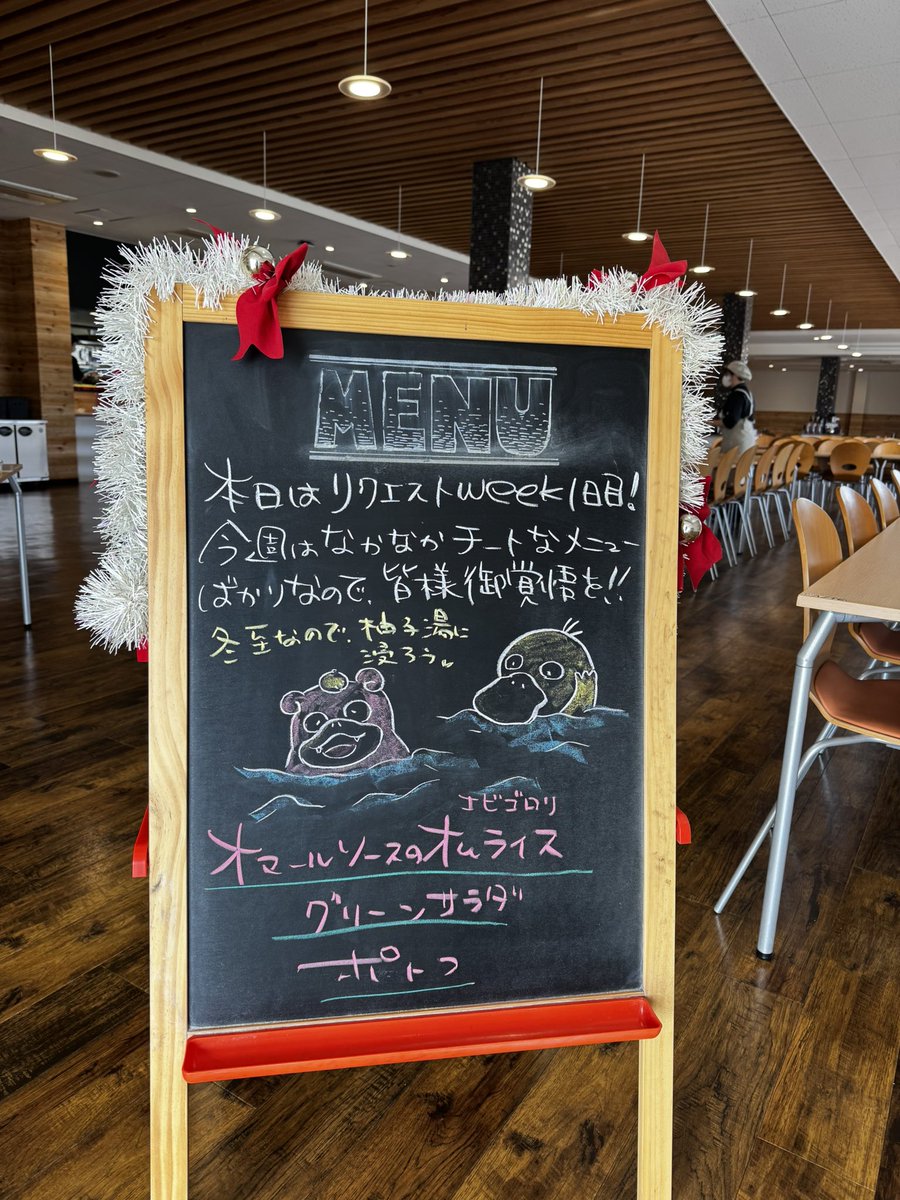 MENU
本日はリクエストweek1日目!
今週はなかなかチートなメニュー
ばかりなので、皆様御覚悟を!!
冬至なので、柚子湯に
浸ろう。
エビゴロリ
オマールソースのオムライス
グリーンサラダ
ポトフ